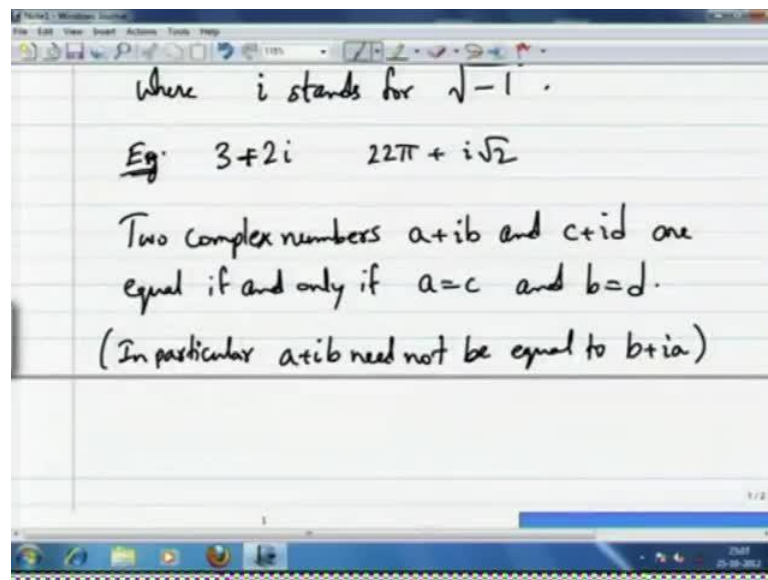 Note1 - Windows Journal
File Edit View Insert Actions Tools Help
where i stands for √-1 .
Eg. 3+2i 22π + i√2
Two complex numbers a+ib and c+id are
equal if and only if a=c and b=d.
(In particular a+ib need not be equal to b+ia)
1/2
1
23:07
25-10-2012